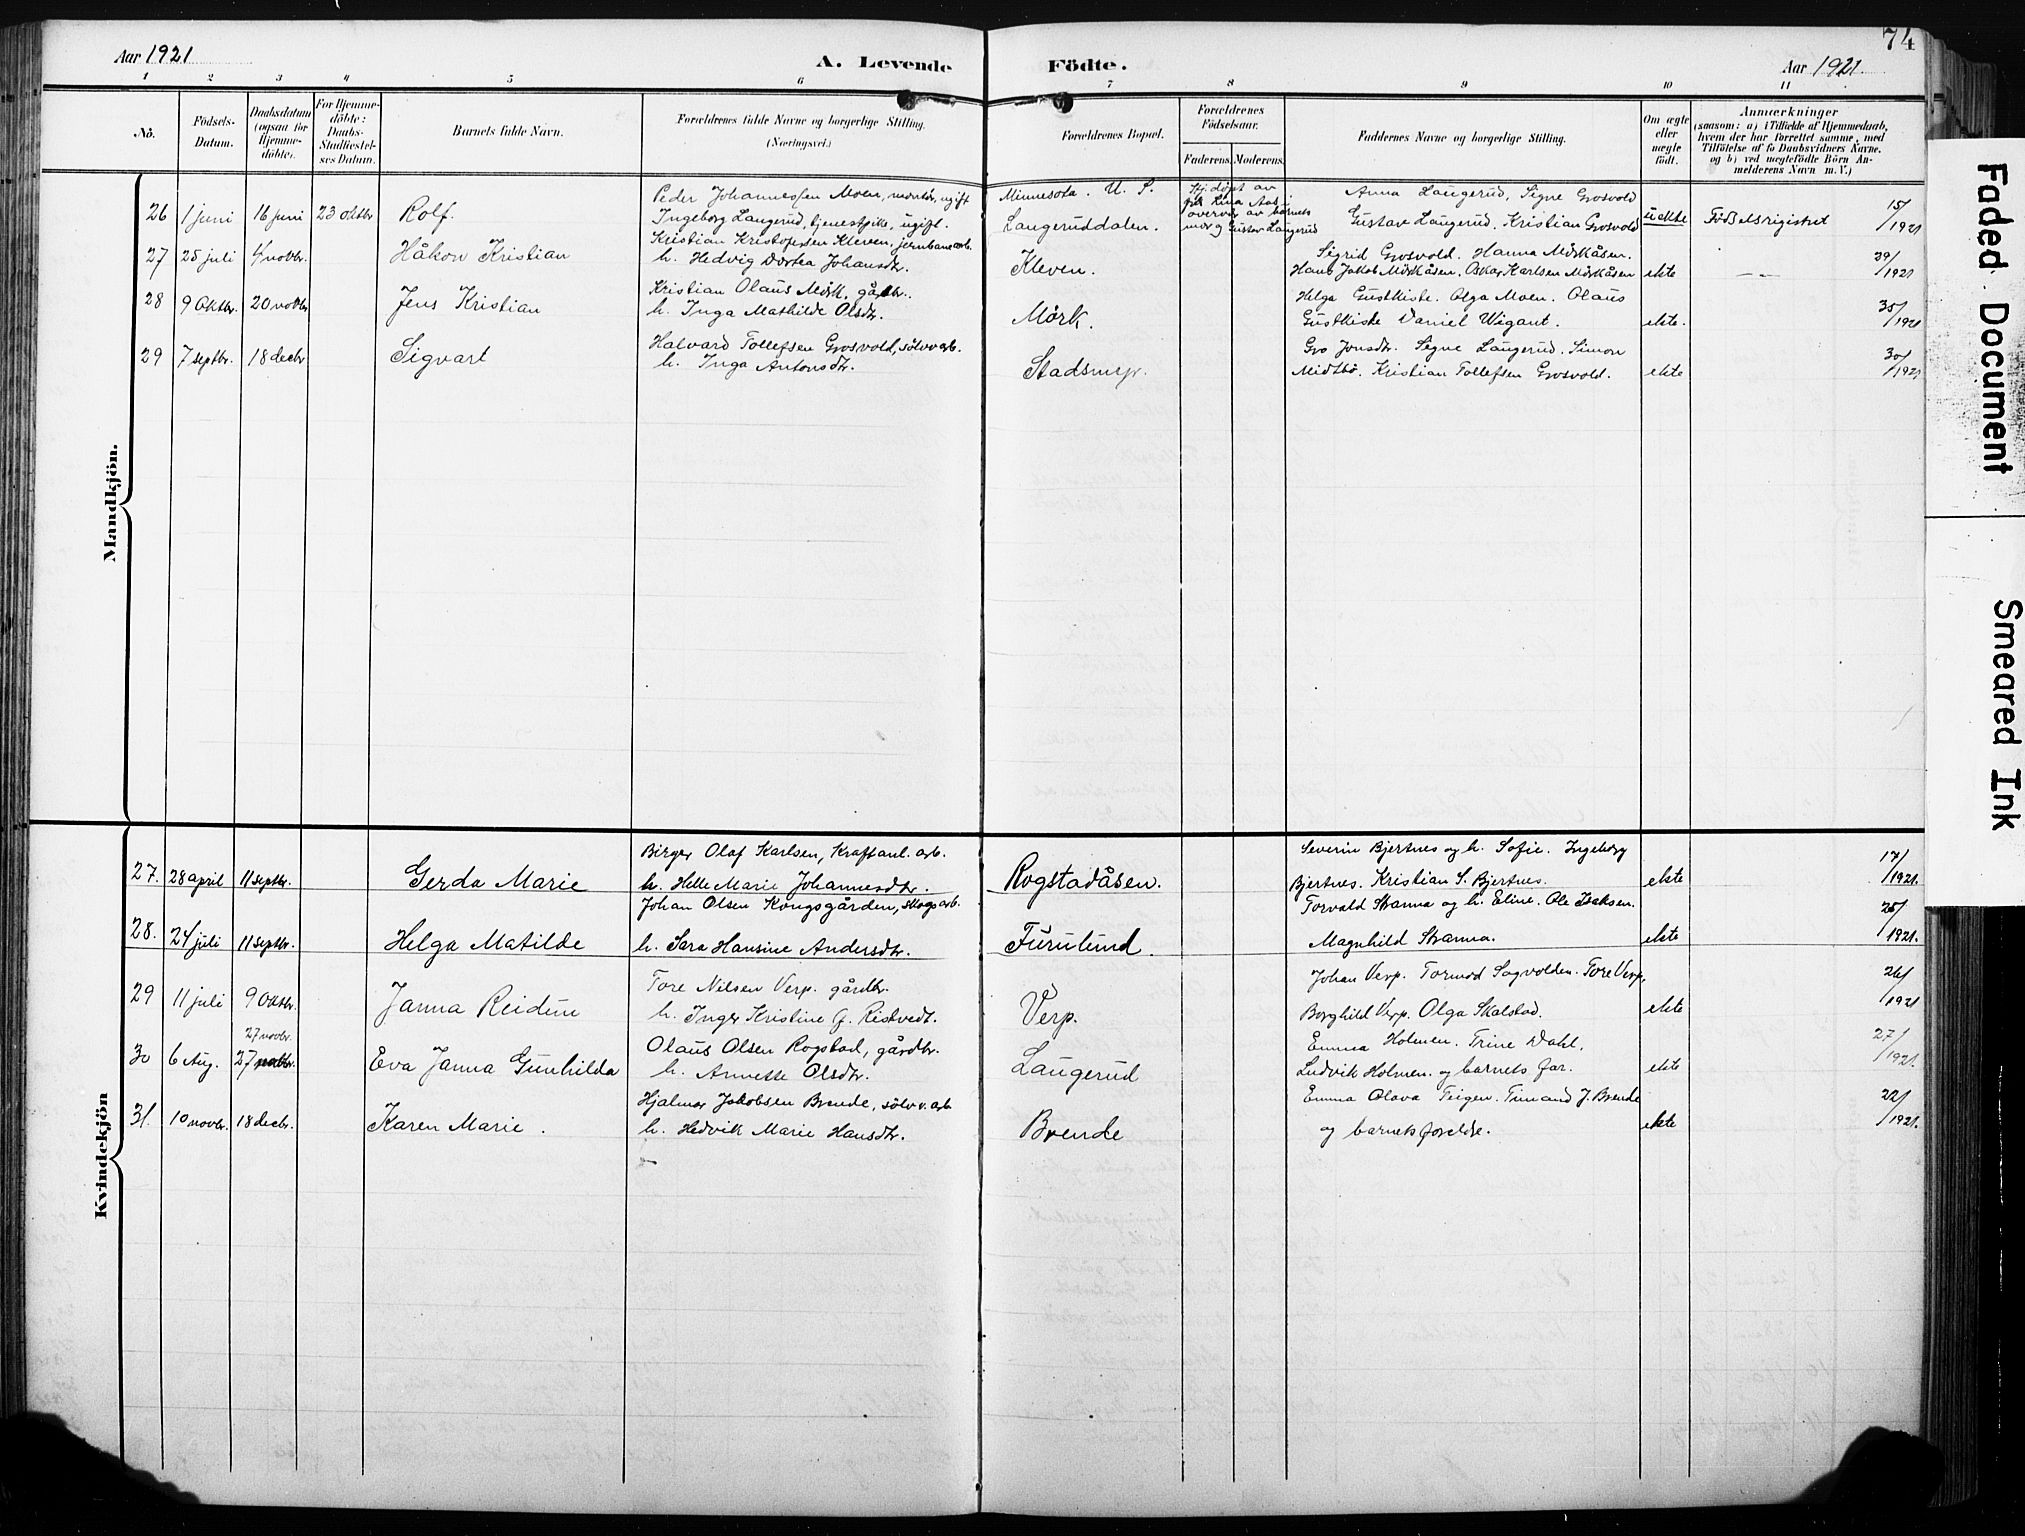 Aar 1921
A. Levende
Födte.
Aar 1921.
74
1 2 3 4 5 6 7 8 9 10 11
Nô.
Födsels-
Datum.
Daabsdatum
(ogsaa for
Hjemme-
döbte).
For Hjemme-
döbte:
Daabs-
Stadfæstel-
ses Datum.
Barnets fulde Navn.
Forældrenes fulde Navne og borgerlige Stilling.
(Næringsvei.)
Forældrenes Bopæl.
Forældrenes
Födselsaar.
Faderens. Moderens.
Faddernes Navne og borgerlige Stilling.
Om ægte
eller
uægte
födt.
Anmærkninger
(saasom: a) i Tilfælde af Hjemmedaab,
hvem der har forrettet samme, med
Tilföielse af to Daabsvidners Navne,
og b) ved uægtefödte Börn An-
melderens Navn m. V.)
Mandkjön.
26 1 juni 16 juni 23 oktbr Rolf.
Peder Johannessen Moen, montör, ugift
Ingeborg Laugerud, tjenestpike, ugift.
Minnesota. U. S.
Laugeruddalen.
Hj.döpt av
overvær av barnets
mor og Gustav Laugerud
Anna Laugerud, Signe Grosvold
Gustav Laugerud, Kristian Grosvold
uekte
Födselsregistret
15/1921
27 25 juli 4 novbr. Håkon Kristian
Kristian Kristofersen Kleven, jernbanearb.
h. Hedvig Dortea Johansdtr.
Kleven.
Sigrid Grosvold. Hanna Mörkåsen.
Hans Jakob Mörkåsen. Oskar Karlsen Mörkåsen
ekte
— —
29/1921
28 9 oktbr. 20 novbr Jens Kristian
Kristian Olaus Mörk, gårdbr.
h. Inga Mathilde Olsdtr.
Mörk.
Helga Gustkiste. Olga Moen. Olaus
Gustkiste Daniel Wigant.
ekte.
35/1921
29 7 septbr. 18 decbr Sigvart
Halvard Tollefsen Grosvold, sölvv.arb.
h. Inga Antonsdtr.
Stadsmyr.
Gro Jonsdtr. Signe Laugerud. Simon
Midtbö. Kristian Tollefsen Grosvold.
ekte
30/1921
Kvindekjön
27. 28 april 11 septbr. Gerda Marie
Birger Olaf Karlsen, Kraftanl. arb.
h. Helle Marie Johannesdtr.
Rogstadåsen.
Severin Bjertnes og h. Sofie. Ingeborg
Bjertnes. Kristian S. Bjertnes.
ekte
17/1921.
28. 24 juli 11 septbr. Helga Matilde
Johan Olsen Kongsgården, skogsarb.
h. Sara Hansine Andersdtr.
Furulund.
Torvald Stranna og h. Eline. Ole Isaksen.
Magnhild Stranna.
ekte
25/1921.
29 11 juli 9 oktbr. Janna Reidun
Tore Nilsen Verp. gårdbr.
h. Inger Kristine G. Ristvedt.
Verp.
Johan Verp. Tormod Sagvolden. Tore Verp,
Borghild Verp. Olga Skalstad.
ekte
26/1921
27 novbr.
30 6 Aug. 27 novbr. Eva Janna Gunhilda
Olaus Olsen Rogstad, gårdbr.
h. Annette Olsdtr.
Laugerud
Emma Holmen. Trine Dahl.
Ludvik Holmen. og barnets far.
ekte
27/1921.
31. 10 novbr. 18 decbr. Karen Marie.
Hjalmar Jakobsen Brende, sölvv.arb
h. Hedvik Marie Hansdtr.
Brende
Emma Olava Teigen. Timand J. Brende
og barnets foreldre.
ekte
22/1921.
Faded Document
Smeared Ink